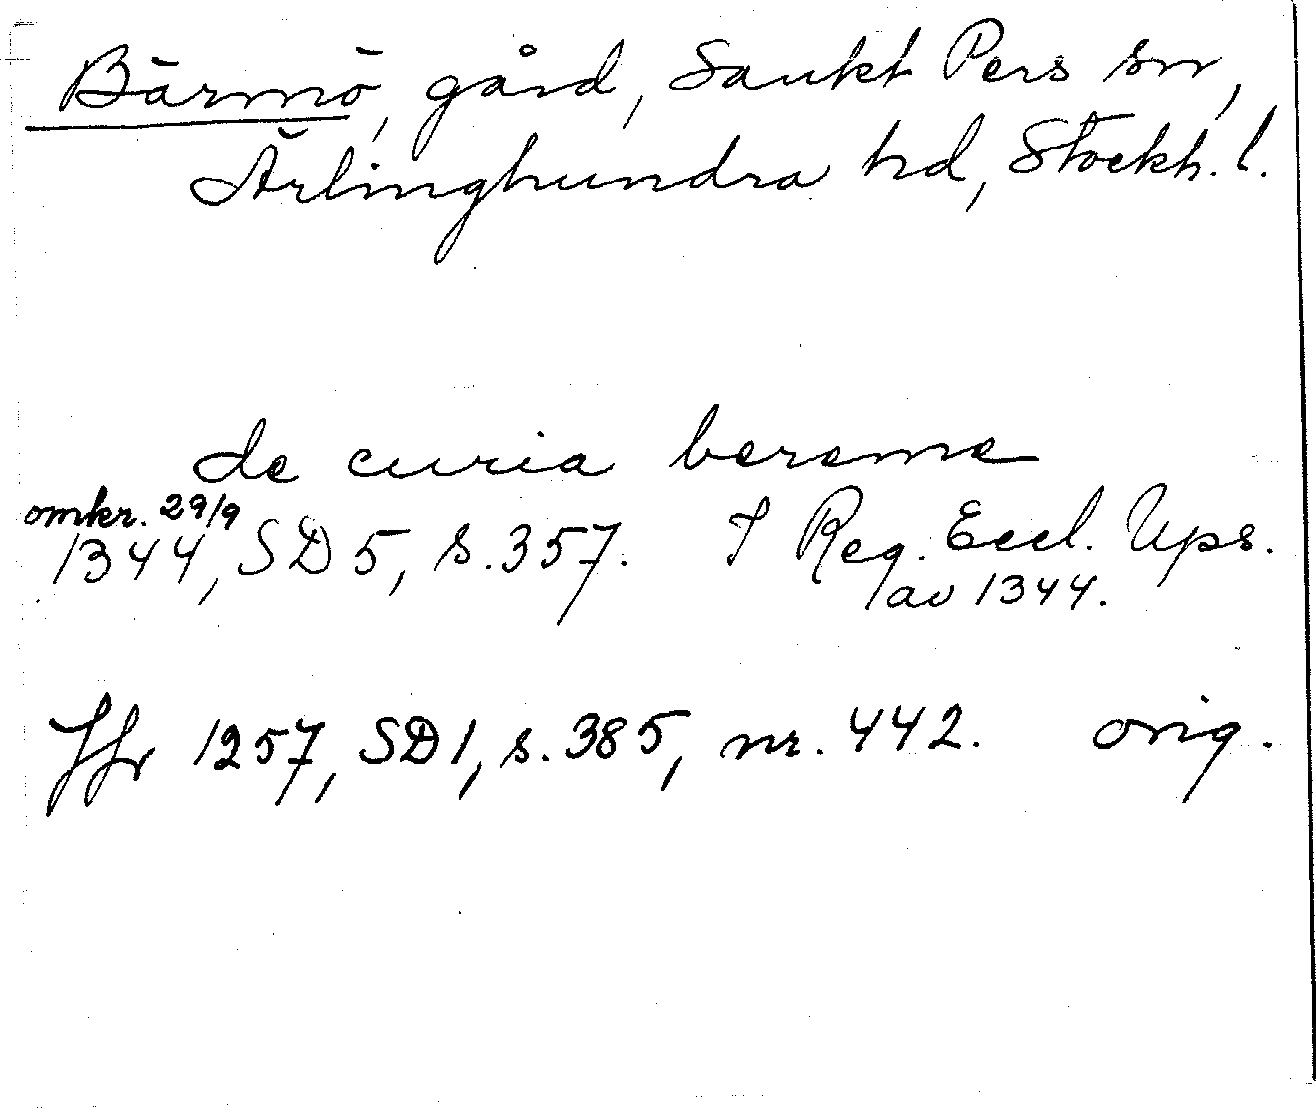 Bärmö, gård, Sankt Pers sn,
Ärlinghundra hd, Stockh. l.
de curia bereme
omkr. 29/9
1344, SD 5, s. 357. I Reg. Eccl. Ups.
av 1344.
Jfr 1257, SD 1, s. 385, nr. 442. orig.